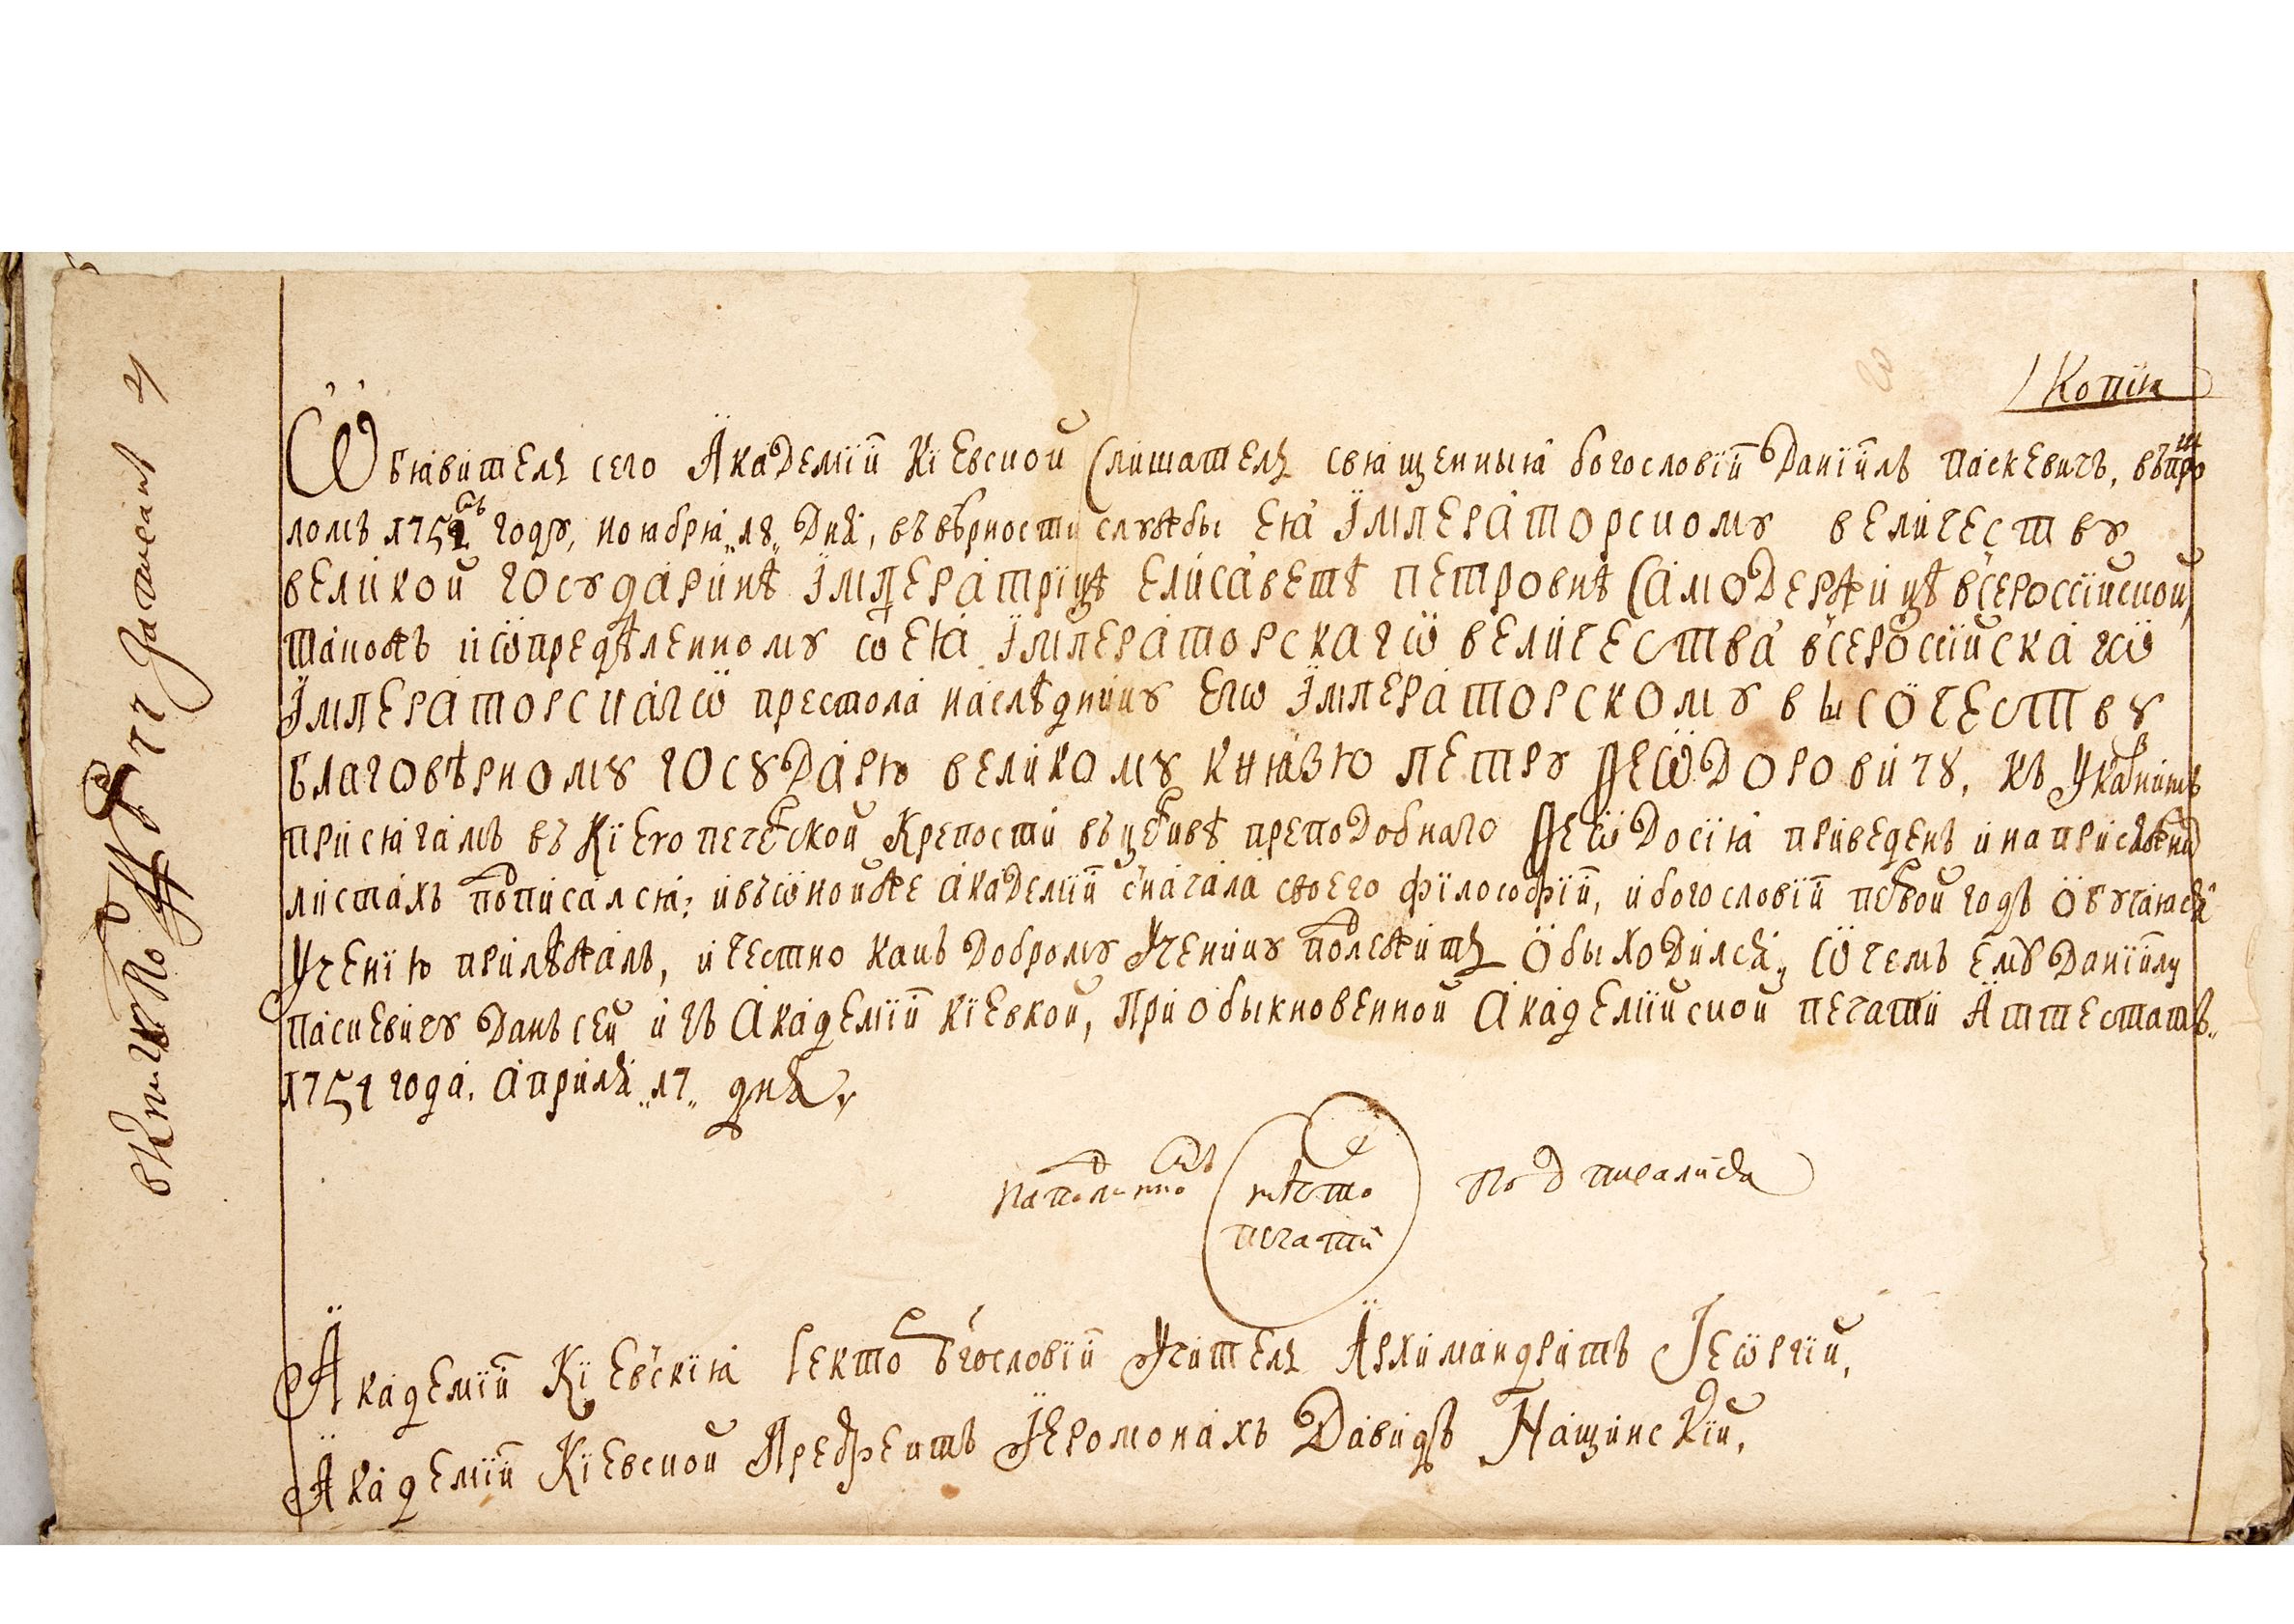 Копїя
Ѡбъявитель сего Академїи Кїевской Слишатель священныя богословїи Данїилъ Паскевичъ, въ прош
ломъ году, ноября „18„ дня, въ вѣрности службы ея Їмператорскому величеству
великой государинѣ Їмператрїцѣ Елисаветѣ Петровнѣ Самодержицѣ всероссїйской,
такожъ и ѡпредѣленному ѿ ея Їмператорскагѡ величества всеросїйскагѡ
Їмператорскагѡ престола наслѣднику егѡ Їмператорскому высочеству
благовѣрному государю великому князю Петру Ѳеѡдоровичу, къ
присягамъ въ Кїево печерской Крепости въ церквѣ преподобнаго Ѳеѡдосїя приведенъ и на
листахъ подписался; и въ ѡной же академїи сначала своего филосоофїи, и богословїи первой годъ обучаюся
Ученїю прилѣжалъ, и честно какъ доброму Ученику подлежитъ обыходился, Ѡ чемъ ему Данїилу
Паскевичу данъ сей и зъ Академїи Кїевкой, При обыкновенной Академїйской печати Аттестатъ„
1754 года. Априля „17„ дня„
На подлинно мѣсто печати подписалися
Академїи Кїевскїя Ректор Богословїи Учитель Архимандритъ Геѡргїй,
Академїи Кїевской Префектъ Їеромонахъ Давидъ Нащинскїй.